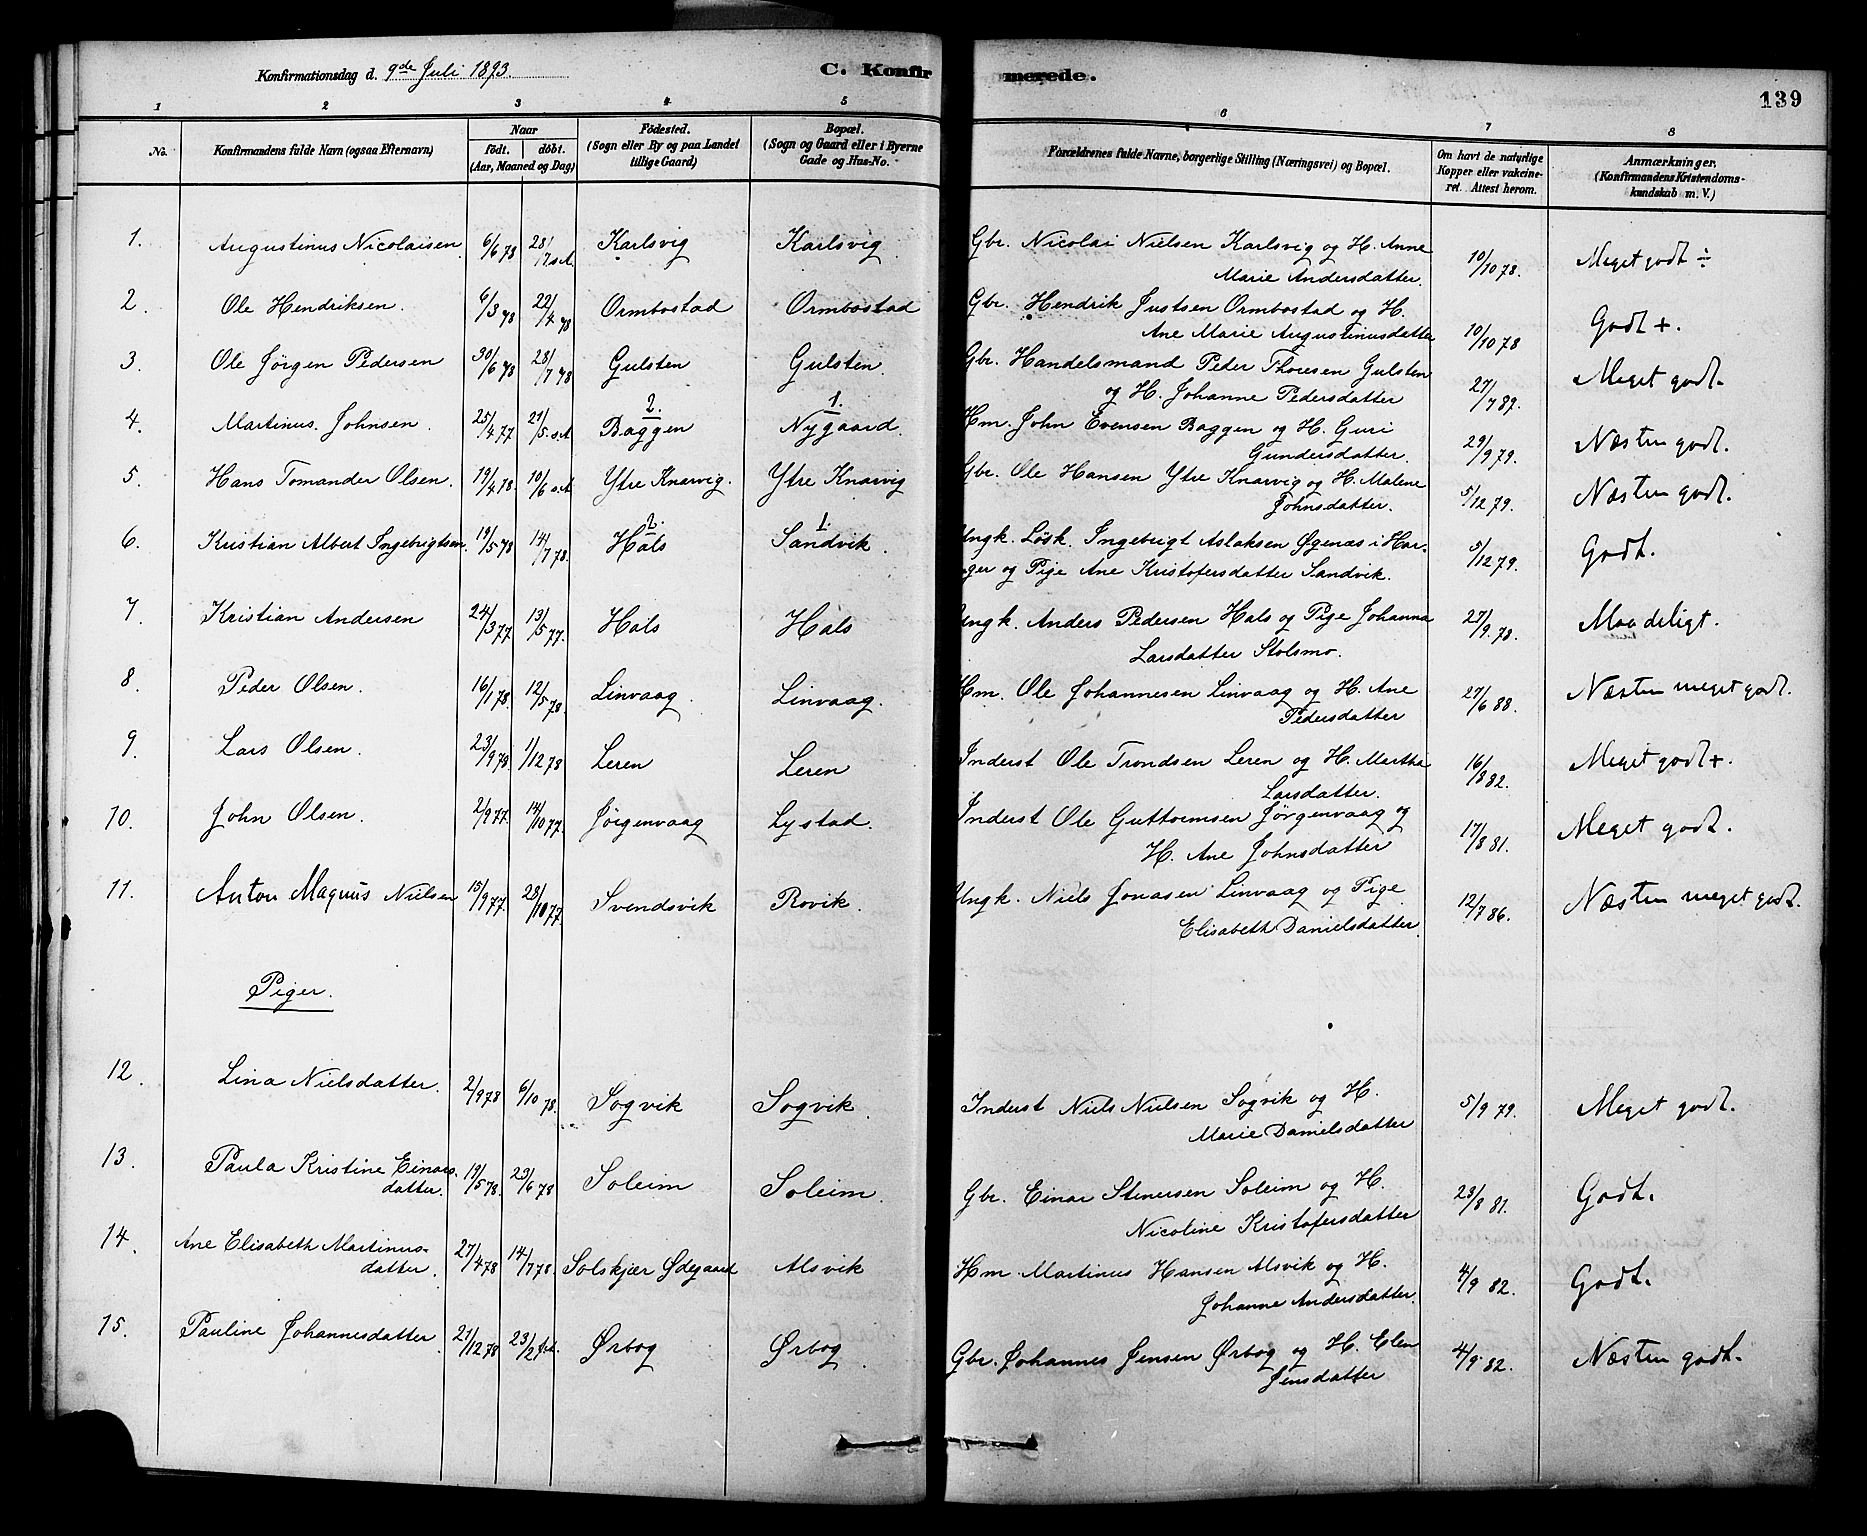 Konfirmationsdag d. 9de Juli 1893.
C. Konfirmerede.
139
1 2 3 4 5 6 7 8
No.
Konfirmandens fulde Navn (ogsaa Efternavn)
Naar
födt. döbt.
(Aar, Maaned og Dag)
Födested.
(Sogn eller By og paa Landet
tillige Gaard)
Bopæl.
(Sogn og Gaard eller i Byerne
Gade og Hus-No.
Forældrenes fulde Navne, borgerlige Stilling (Næringsvei) og Bopæl.
Om havt de naturlige
Kopper eller vakcine-
ret. Attest herom.
Anmærkninger.
(Konfirmandens Kristendoms-
kundskab m. V.)
1. Augustinus Nicolaisen 6/6 78 28/7 s.A. Karlsvig Karlsvig Gbr. Nicolai Nielsen Karlsvig og H. Anne
Marie Andersdatter. 10/10 78. Meget godt ÷
2. Ole Hendriksen. 6/3 78 22/4 78 Ormbostad Ormbostad Gbr. Hendrik Justsen Ormbostad og H.
Ane Marie Augustinusdatter 10/10 78 Godt +.
3. Ole Jörgen Pedersen 30/6 78 28/7 78 Gulsten Gulsten. Gbr. Handelsmand Peder Thoresen Gulsten
og H. Johanne Pedersdatter 27/7 89. Meget godt.
4. Martinus Johnsen. 25/4 77 21/5 s.A 2. Baggen 1. Nygaard. Hm. John Evensen Baggen og H. Guri
Gundersdatter. 29/9 79. Næsten godt.
5. Hans Tomander Olsen. 19/4 78. 10/6 s.A Ytre Knarvig. Ytre Knarvig Gbr. Ole Hansen Ytre Knarvig og H. Malene
Johnsdatter. 5/12 79. Næsten godt.
6. Kristian Albert Ingebrigtsen 19/5 78 14/7 78. 2. Hals 1. Sandvik. Ungk. Løsk. Ingebrigt Aslaksen Øgenæs i Har-
ger og Pige Ane Kristofersdatter Sandvik. 5/12 79. Godt.
7. Kristian Andersen 24/3 77 13/5 77. Hals Hals Ungk. Anders Pedersen Hals og Pige Johanna
Larsdatter Stolsmo. 27/9 78. Maadeligt.
8. Peder Olsen. 16/1 78. 12/5 78. Linvaag. Linvaag. Hm. Ole Johannesen Linvaag og H. Ane
Pedersdatter 27/6 88. Næsten meget godt.
9. Lars Olsen. 23/9 78. 1/12 78 Leren Leren Inderst Ole Trondsen Leren og H. Martha
Larsdatter. 16/8 82. Meget godt +.
10. John Olsen. 2/9 77. 14/10 77. Jørgenvaag Lystad. Inderst Ole Guttormsen Jørgenvaag og
H. Ane Johnsdatter 17/8 81. Meget godt.
11. Anton Magnus Nielsen 15/9 77. 28/10 77. Svendsvik Rovik. Ungk. Niels Jonasen Linvaag og Pige
Elisabeth Danielsdatter. 12/7 86. Næsten meget godt.
Piger.
12. Lina Nielsdatter. 2/9 78 6/10 78. Sogvik Sogvik. Inderst Niels Nielsen Sogvik og H.
Marie Danielsdatter 5/9 79. Meget godt.
13. Paula Kristine Einars-
datter. 19/5 78. 23/6 78 Soleim Soleim. Gbr. Einar Stenersen Soleim og H.
Nicoline Kristofersdatter 23/8 81. Godt.
14. Ane Elisabeth Martinus-
datter. 27/4 78 14/7 78. Solskjær Ødegaard Alsvik Hm. Martinus Hansen Alsvik og H.
Johanne Andersdatter. 4/9 82. Godt.
15. Pauline Johannesdatter 21/12 78 23/2 Ørbog Ørbog. Gbr. Johannes Jensen Ørbog og H. Elen
Jensdatter 4/9 82. Næsten godt.